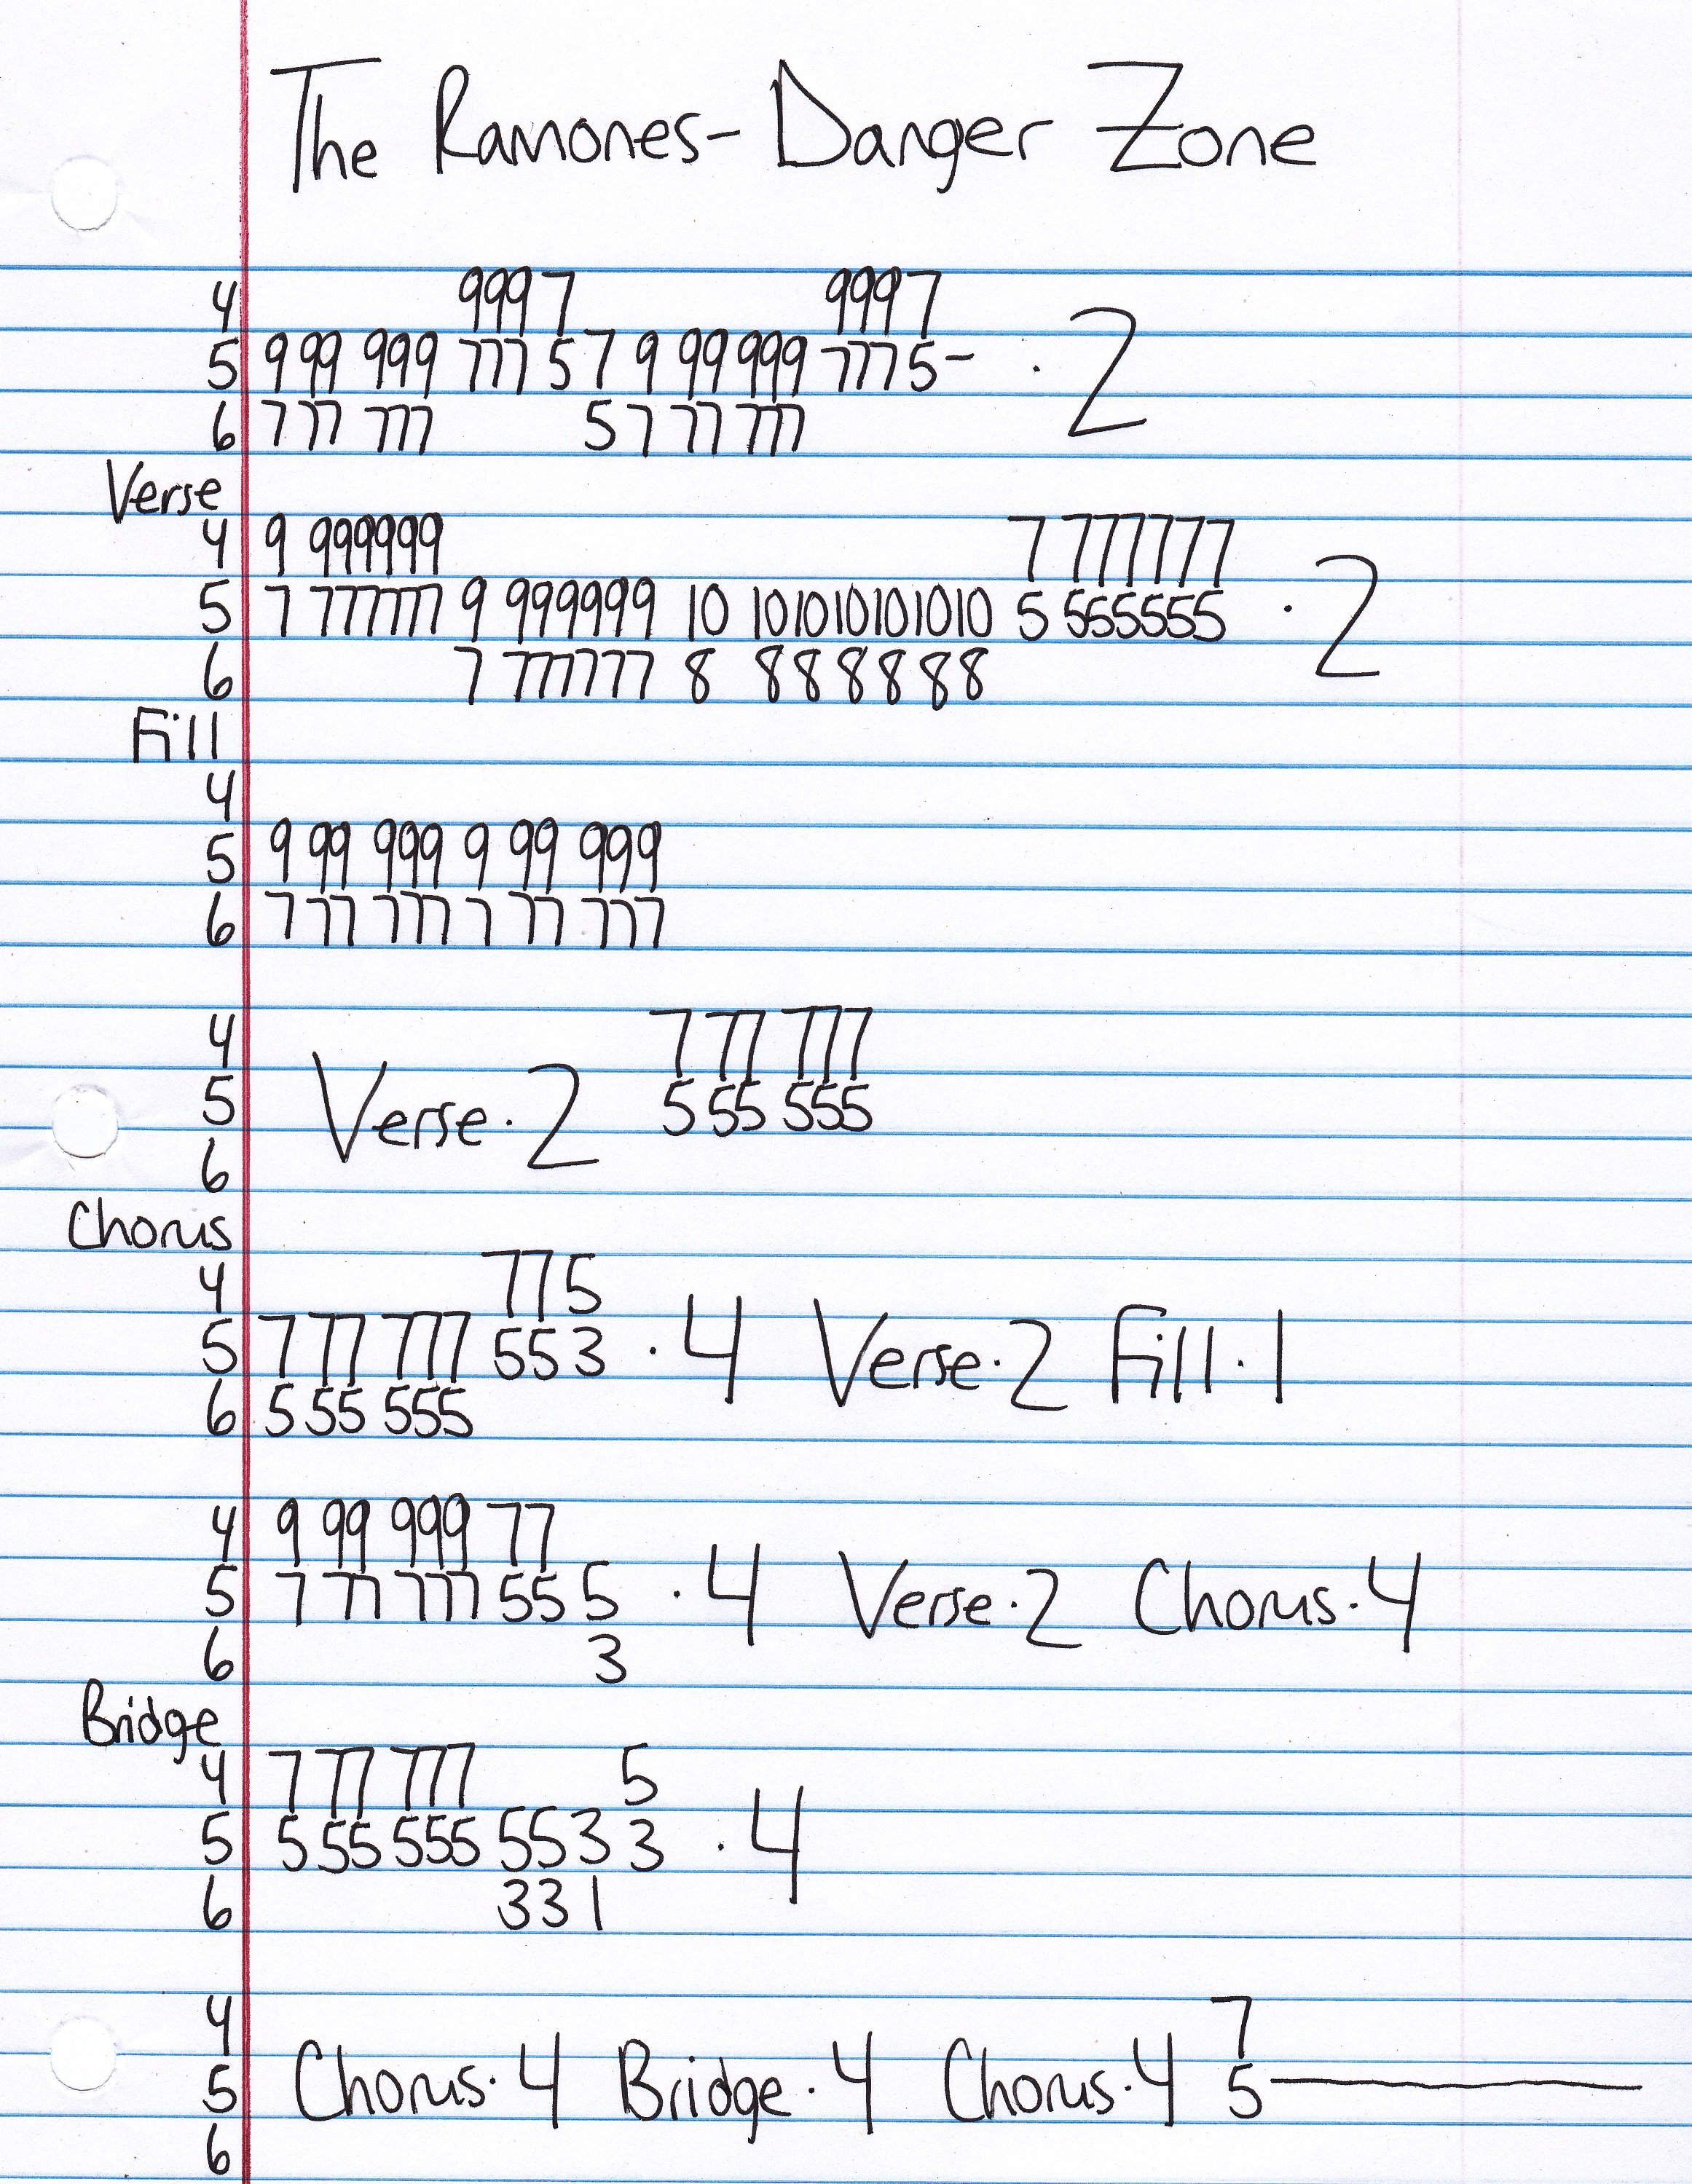 The Ramones- Danger Zone
4 9997 9997
5 9 99 999 777 5 7 9 99 999 7775- · 2
6 7 77 777 5 7 77 777
Verse
4 9 999999 7 777777
5 7 777777 9 999999 10 101010101010 5 555555 · 2
6 7 777777 8 888888
Fill
4
5 9 99 999 9 99 999
6 7 77 777 7 77 777
4 7 77 777
5 Verse·2 5 55 555
6
Chorus
4 775
5 7 77 777 553 ·4 Verse·2 Fill·1
6 5 55 555
4 9 99 999 77
5 7 77 777 55 5 ·4 Verse·2 Chorus·4
6 3
Bridge
4 7 77 777 5
5 5 55 555 553 3 ·4
6 331
4 7
5 Chorus·4 Bridge·4 Chorus·4 5—
6